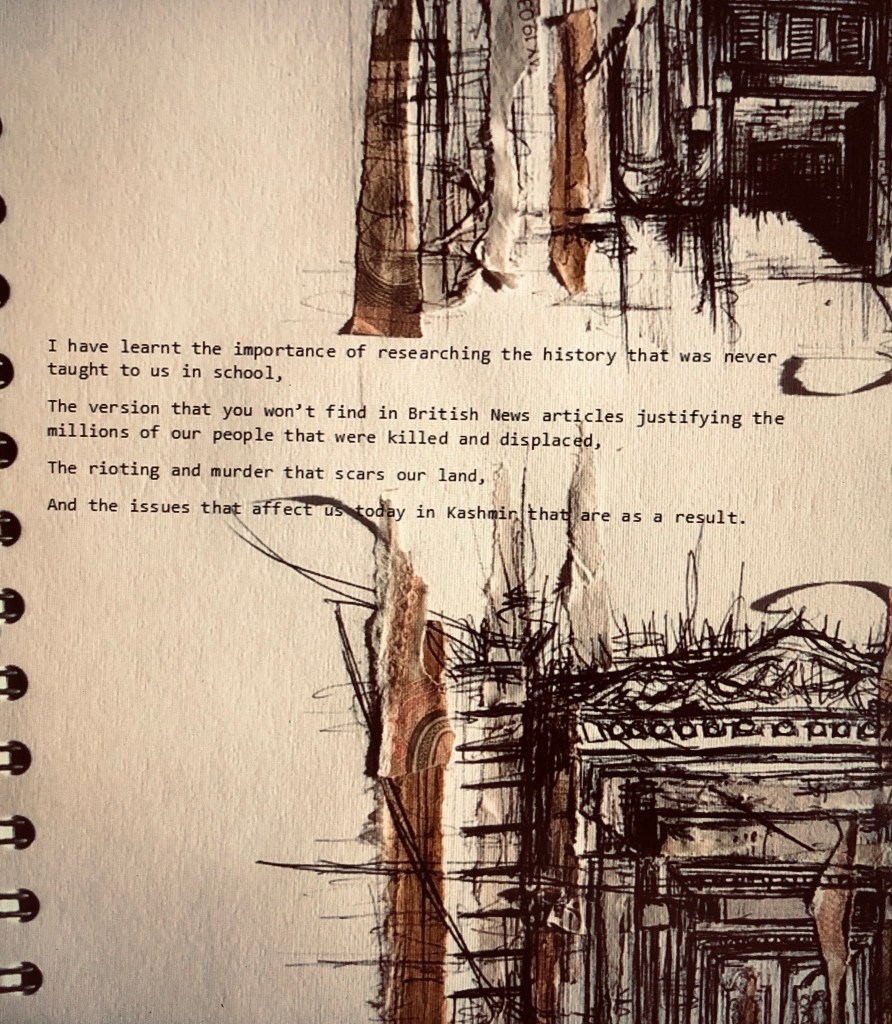 I have learnt the importance of researching the history that was never
taught to us in school,
The version that you won't find in British News articles justifying the
millions of our people that were killed and displaced,
The rioting and murder that scars our land,
And the issues that affect us today in Kashmir that are as a result.